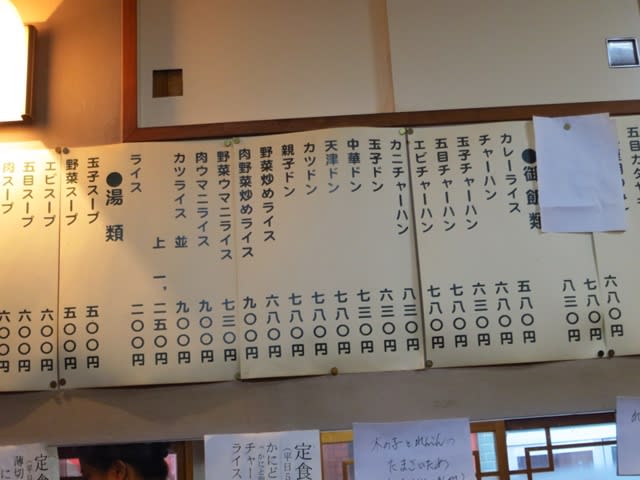 五目カタ
六八〇円
七八〇円
八三〇円
●御飯類
カレーライス 五八〇円
チャーハン 五八〇円
玉子チャーハン 六三〇円
五目チャーハン 七八〇円
エビチャーハン 七八〇円
カニチャーハン 八三〇円
玉子ドン 六三〇円
中華ドン 七八〇円
天津ドン 七八〇円
カツドン 七八〇円
親子ドン 七八〇円
野菜炒めライス 六八〇円
肉野菜炒めライス 九〇〇円
野菜ウマニライス 七三〇円
肉ウマニライス 九〇〇円
カツライス 並 九〇〇円
上 一,二五〇円
ライス 二〇〇円
●湯類
玉子スープ 五〇〇円
野菜スープ 五〇〇円
エビスープ 六〇〇円
五目スープ 六〇〇円
肉スープ 六〇〇円
木の子とれんこんの
たまごいため
定食
(平日
かにど
チャー
ライス
定食
(平日
薄切